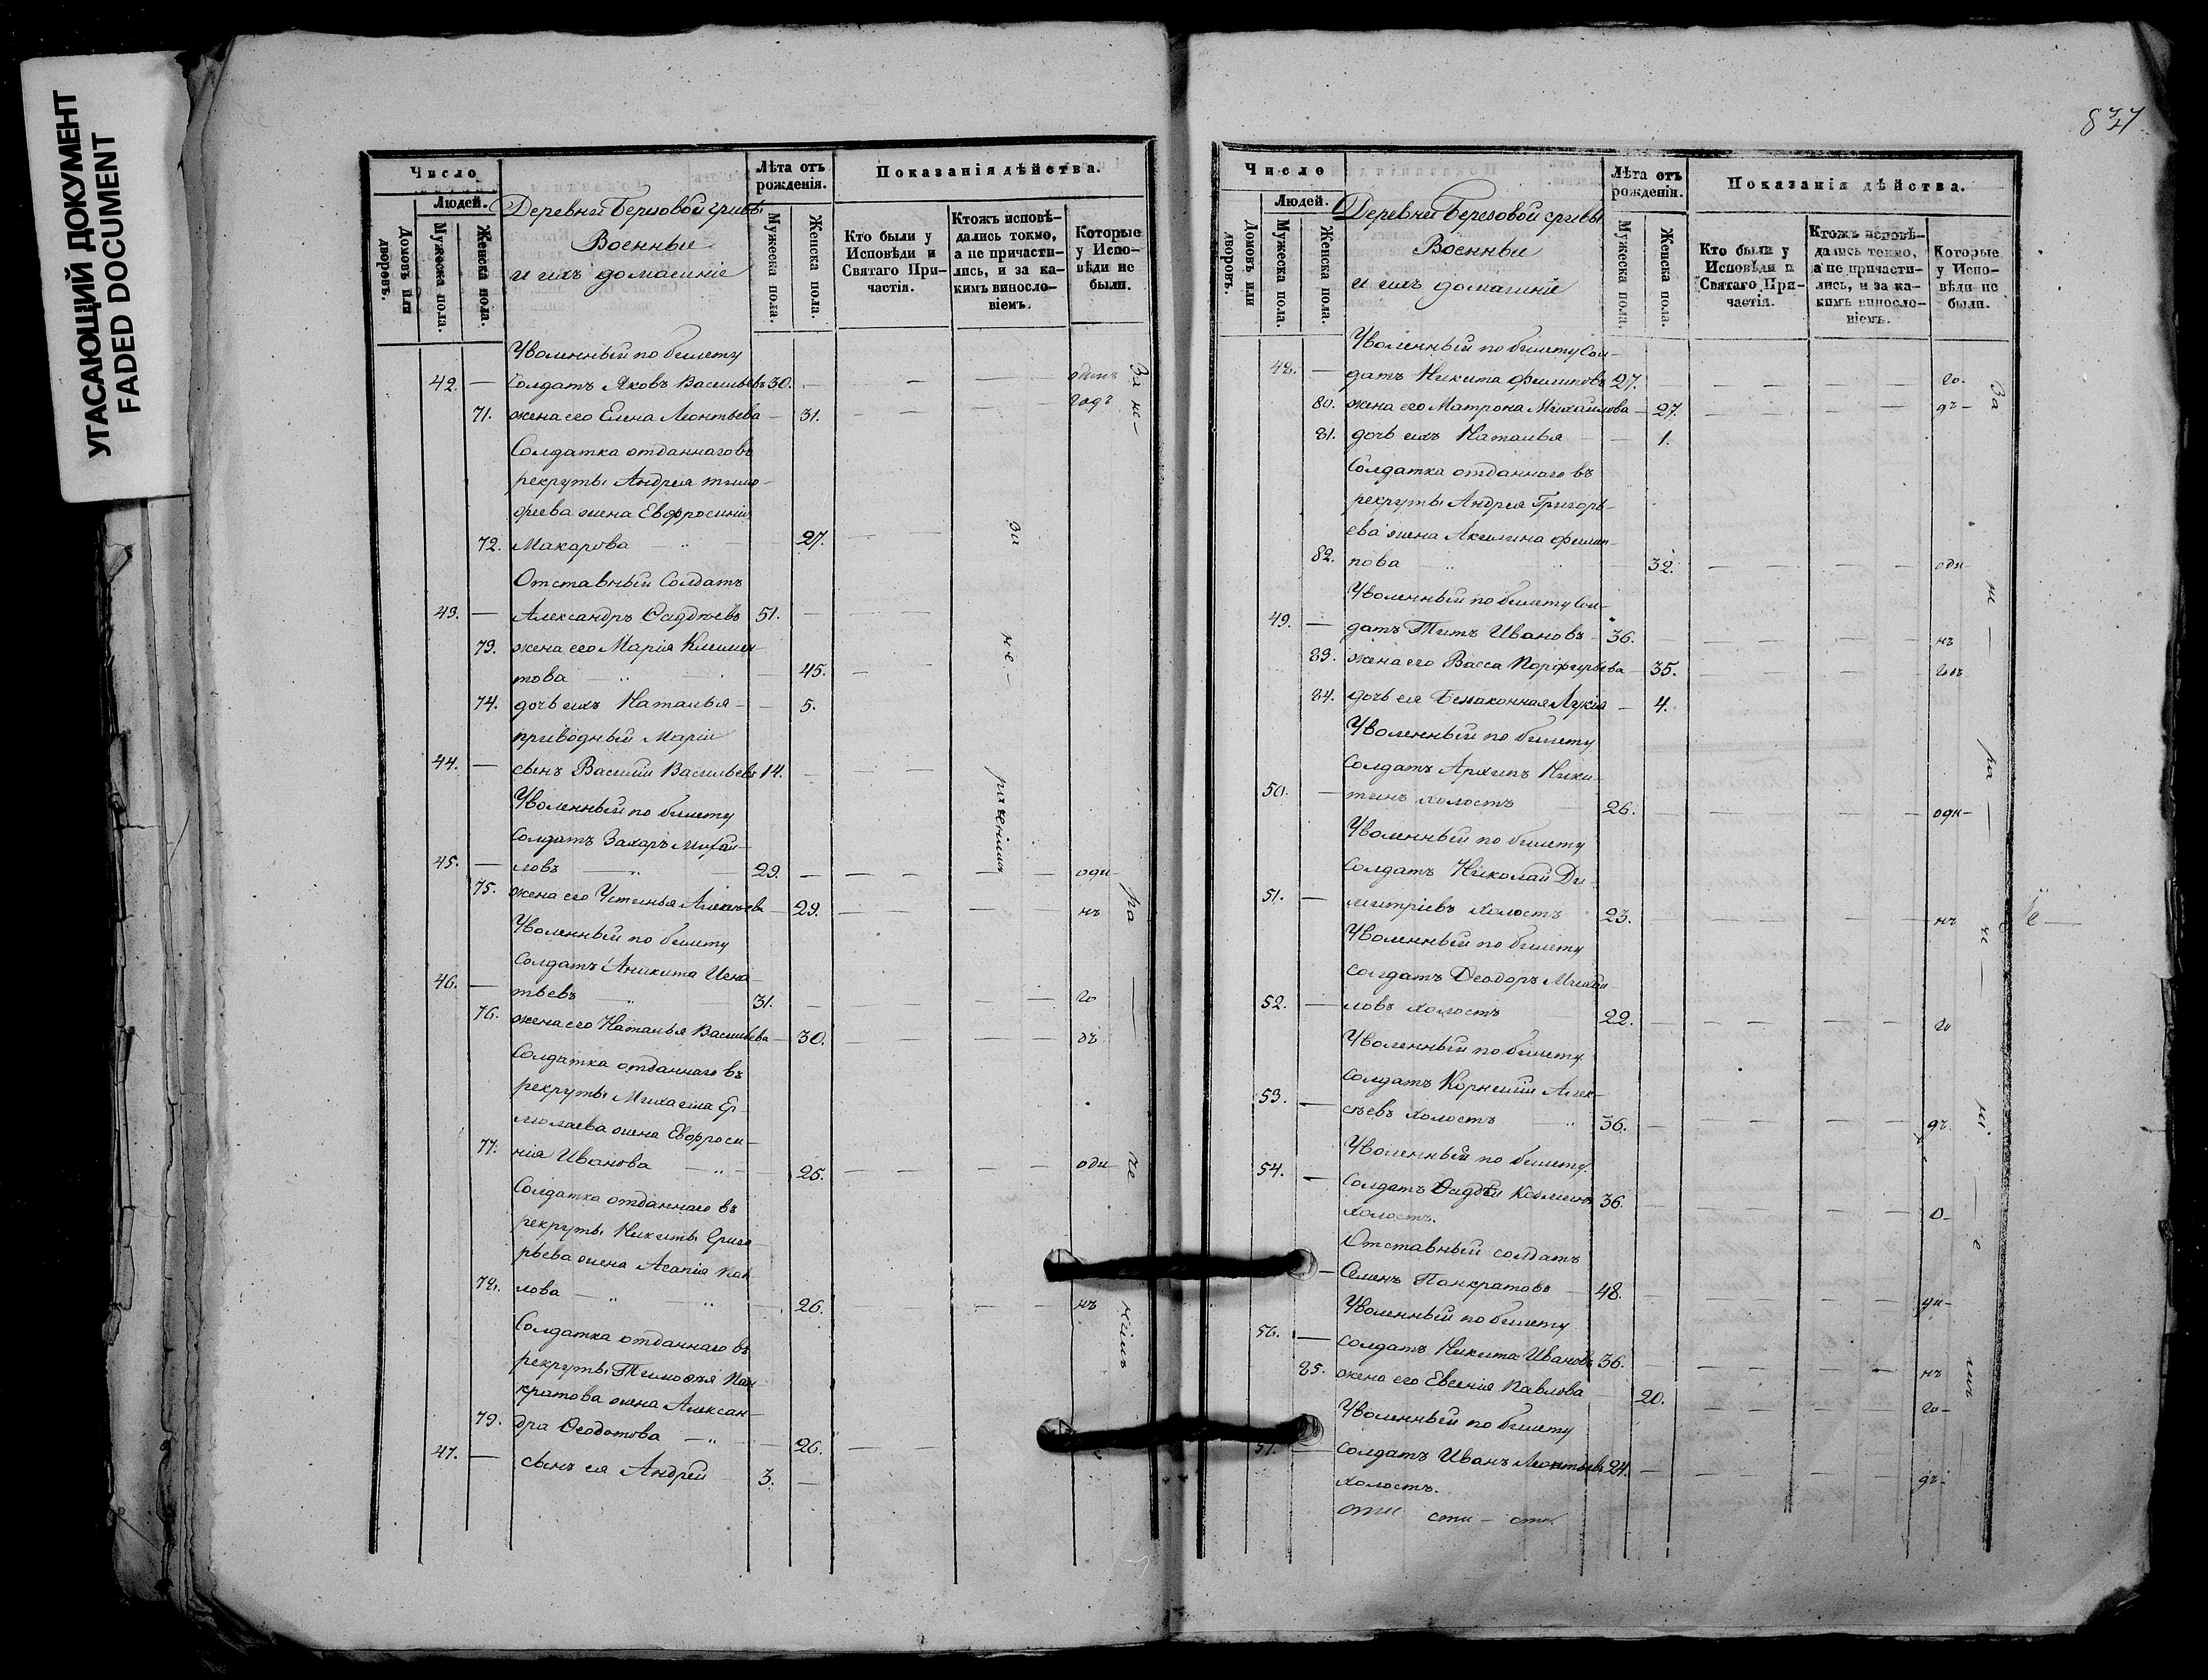 УГАСАЮЩИЙ ДОКУМЕНТ
FADED DOCUMENT
Число
Людей.
Домовъ или дворовъ.
Мужеска пола.
Женска пола.
Деревни Березовой гривы
Военные
и ихъ домашніе
Лѣта отъ рожденія.
Мужеска пола.
Женска пола.
Показанія дѣйства.
Кто были у Исповѣди и Святаго Причастія.
Ктожъ исповѣдались токмо, а не причастились, и за какимъ винословіемъ.
Которые у Исповѣди не были.
Уволенный по билету
42. — Солдатъ Яковъ Васильевъ 30. — — — одинъ
71. жена его Елена Леонтьева — 31. годъ
Солдатка отданнаго въ
рекруты Андрея Тимо-
феева жена Евфросинія
72. Макарова — 27. — —
Отставный Солдатъ
43. — Александръ Ѳаддѣевъ 51. — —
73. жена его Марія Климен-
това — 45. —
74. дочь ихъ Наталья — 5.
приводный Маріи
44. — сынъ Василій Васильевъ 14. — —
Уволенный по билету
Солдатъ Захаръ Михай-
45. — ловъ — 29. — — — — — оди-
75. жена его Устинья Алексѣева — 29. — — — — нъ
Уволенный по билету
Солдатъ Аникита Игна-
46. — тьевъ — 31. — — — — го
76. жена его Наталья Васильева — 30. — — — — дъ
Солдатка отданнаго въ
рекруты Михаила Ер-
молаева жена Евфроси-
77. нія Иванова — 25. — — — — оди-
Солдатка отданнаго въ
рекруты Никиты Григо-
рьева жена Агапія Пав-
78. лова — 26. — — — — нъ
Солдатка отданнаго въ
рекруты Тимоѳея Пан-
кратова жена Алексан-
79. дра Ѳеодотова — 26. — —
47. — сынъ ея Андрей 3. —
за не- раченіемъ
За не- ра — че ніемъ
837
Число
Людей.
Домовъ или дворовъ.
Мужеска пола.
Женска пола.
Деревни Березовой гривы
Военные
и ихъ домашніе
Лѣта отъ рожденія.
Мужеска пола.
Женска пола.
Показанія дѣйства.
Кто были у Исповѣди и Святаго Причастія.
Ктожъ исповѣдались токмо, а не причастились, и за какимъ винословіемъ.
Которые у Исповѣди не были.
Уволенный по билету Сол-
48. — датъ Никита Филиповъ 27. — — — — го-
80. жена его Матрона Михайлова — 27. — — — — дъ-
81. дочь ихъ Наталья — 1.
Солдатка отданнаго въ
рекруты Андрея Григорь-
ева жена Акилина Филип-
82. пова — 32. — — — — оди-
Уволенный по билету Сол-
49. — датъ Титъ Ивановъ — 36. — — — — нъ
83. жена его Васса Порфирьева — 35. — — — — годъ
84. дочь ея Безаконная Лукія — 4.
Уволенный по билету
Солдатъ Архипъ Ники-
50. — тинъ холостъ 26. — — — — оди-
Уволенный по билету
Солдатъ Николай Ди-
51. — митріевъ холостъ 23. — — — — нъ
Уволенный по билету
солдатъ Ѳеодоръ Михай-
52. — ловъ холостъ 22. — — — — го
Уволенный по билету
солдатъ Корнилій Алек-
53. — сѣевъ холостъ 36. — — — — дъ.
Уволенный по билету.
54. — Солдатъ Ѳаддѣй Козминъ 36. — — — — о-
холостъ.
Отставный солдатъ
— Семенъ Панкратовъ — 48. — — — — ди-
Уволенный по билету
56. — солдатъ Никита Ивановъ 36. — — — — нъ
85. жена его Евгенія Павлова — 20. — — — — го-
Уволенный по билету
57. — Солдатъ Иванъ Леонтьевъ 24. — — — — дъ-
холостъ.
За не — ра — че — ні — е мъ